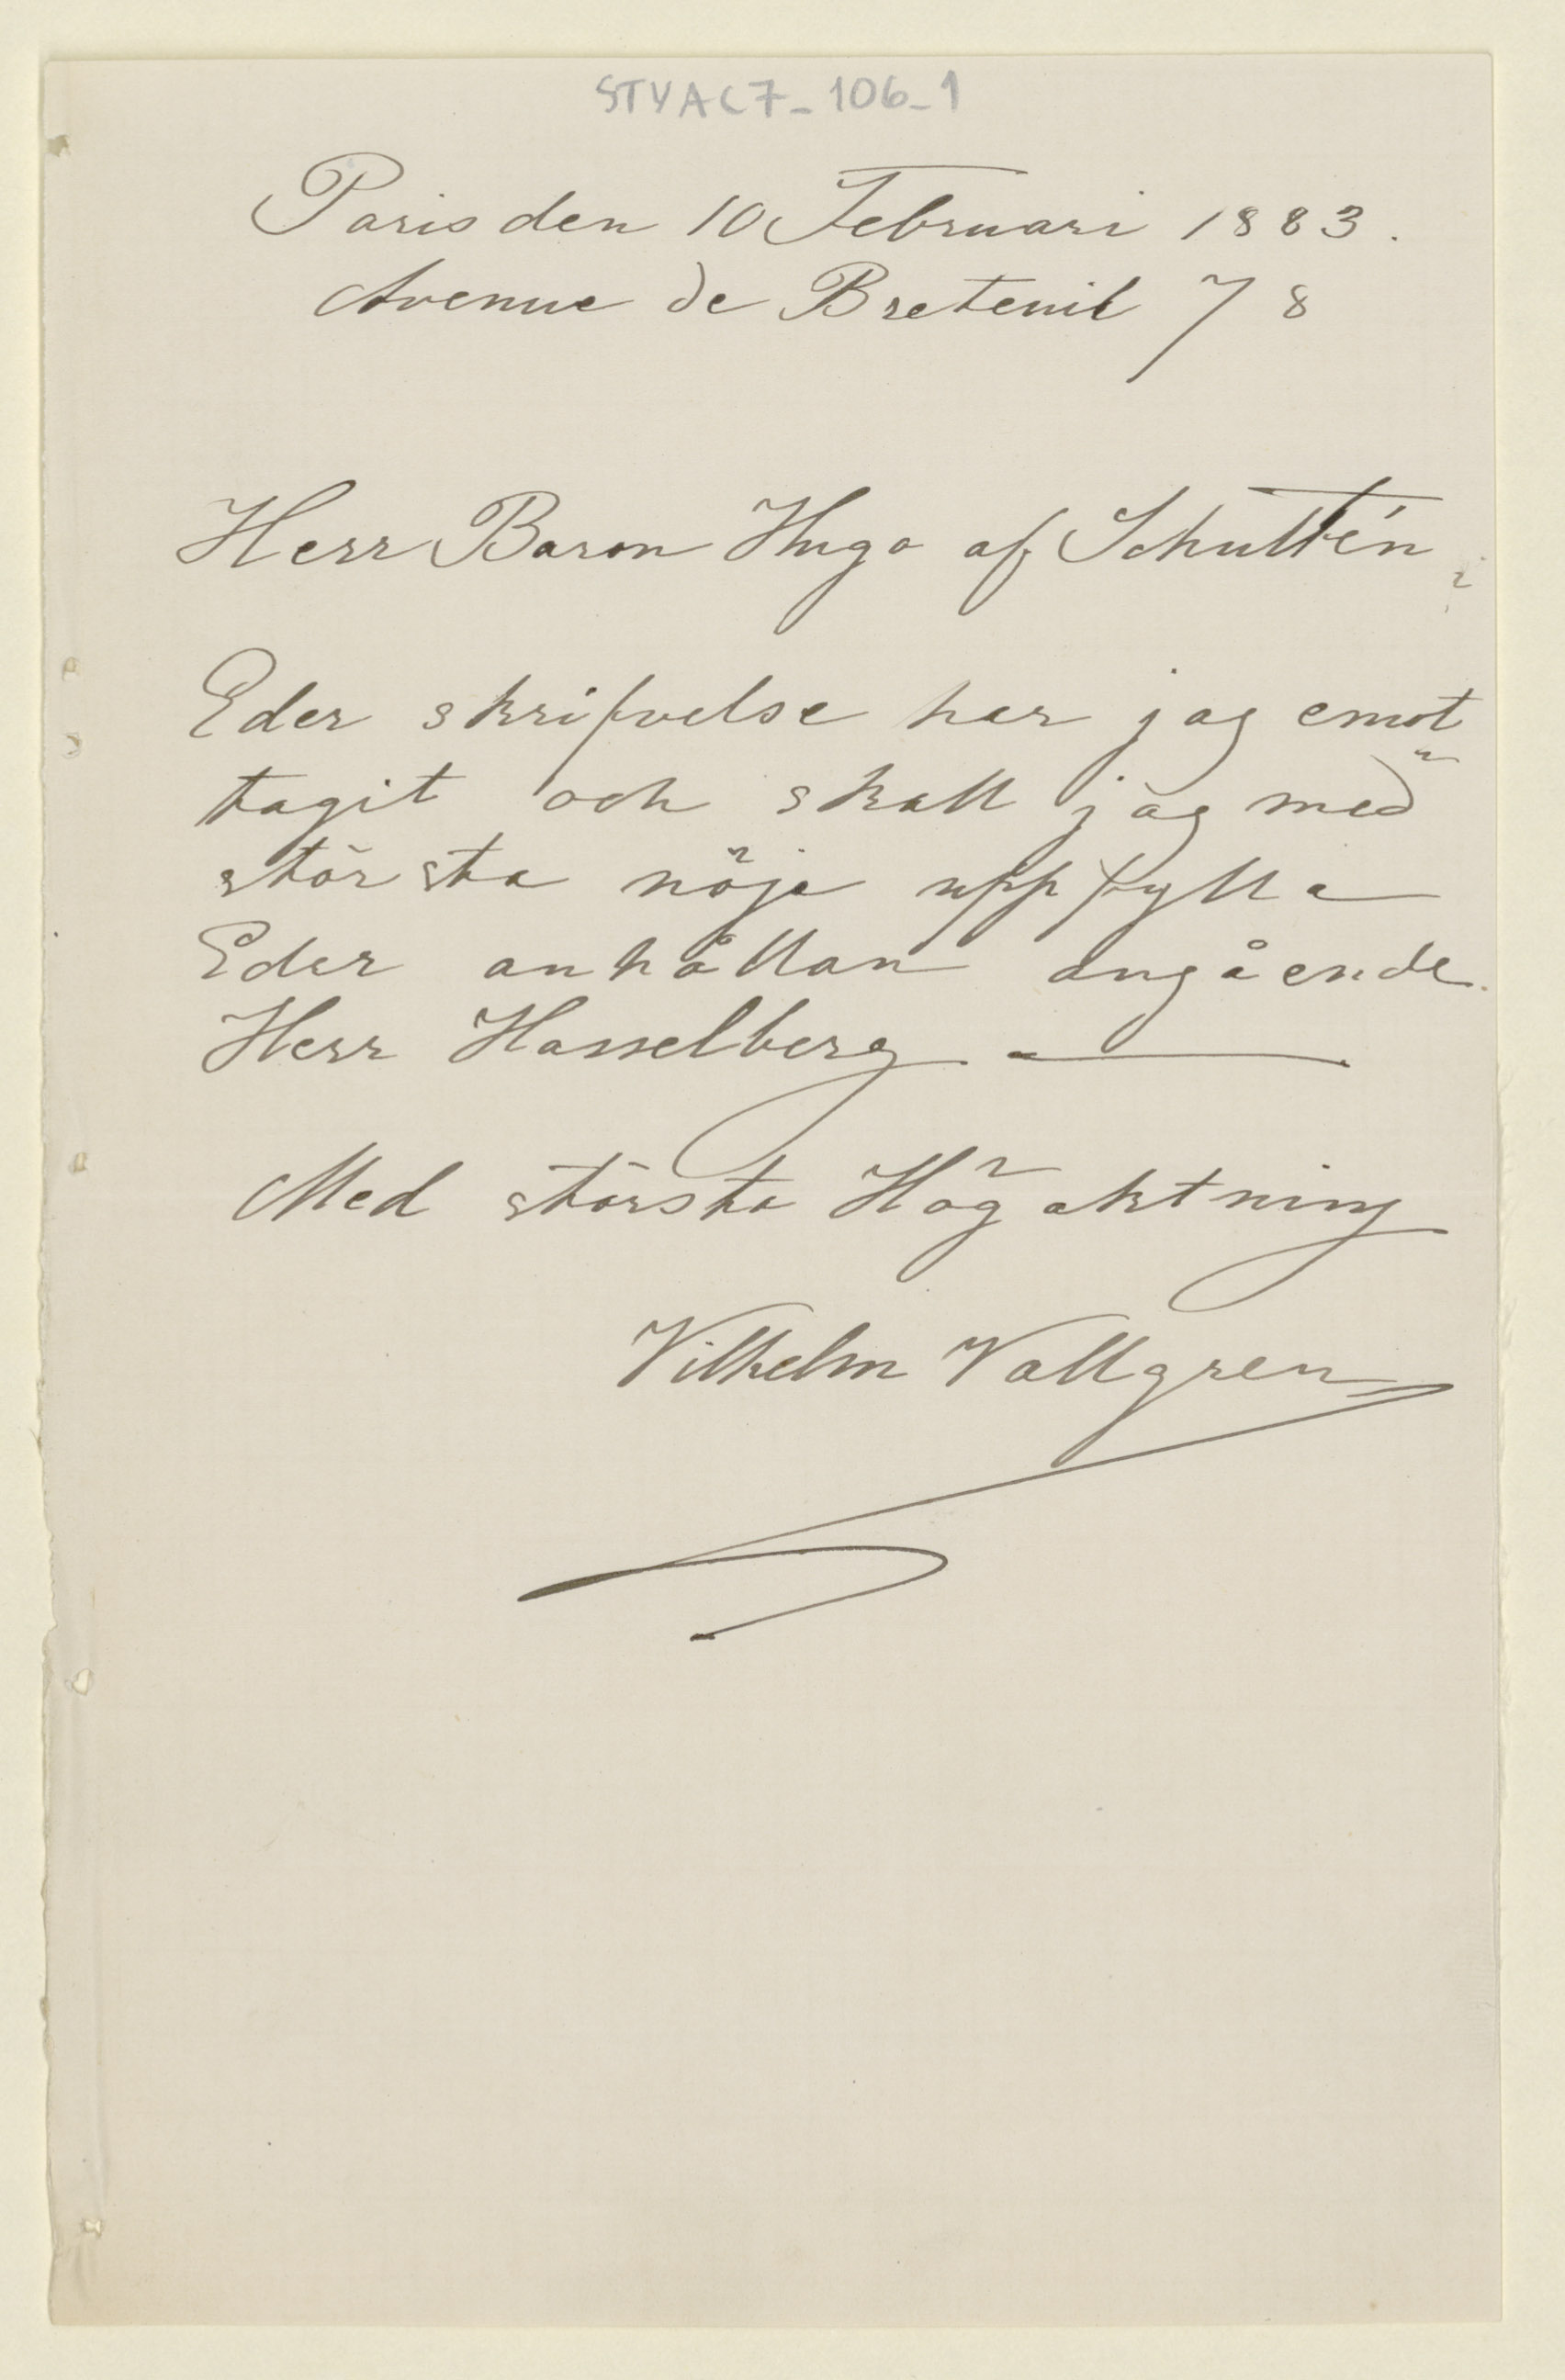 STYAC7_106_1
Paris den 10 Februari 1883.
Avenue de Breteuil 78
Herr Baron Hugo af Schultén
Eder skrifvelse har jag emot
tagit och skall jag med
största nöje uppfylla
Eder anhållan angående
Herr Hasselberg. —
Med största Högaktning
Vilhelm Vallgren